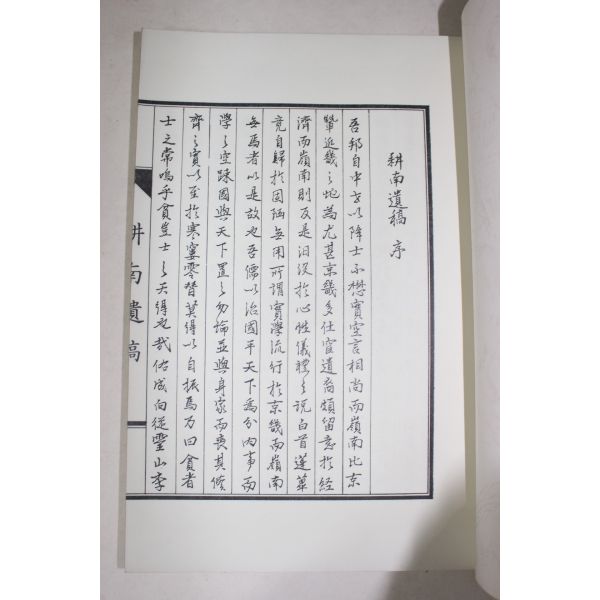 耕南遺稿 序
吾邦自中古以降士不懋實空言相尚而嶺南比京
輦近畿之地為尤甚京畿多仕宦遺裔頗留意於經
濟而嶺南則反是汨沒於心性儀禮之說白首蓬蓽
竟自歸於固陋無用所謂實學流行於京畿而嶺南
無焉者以是故也吾儒以治國平天下為分內事而
學之空踈國與天下置之勿論並與身家而喪其修
齊之實以至於寒窶零替莫得以自振焉乃曰貧者
士之常嗚乎貧豈士之天得已哉佑成向從霊山李
耕南遺稿